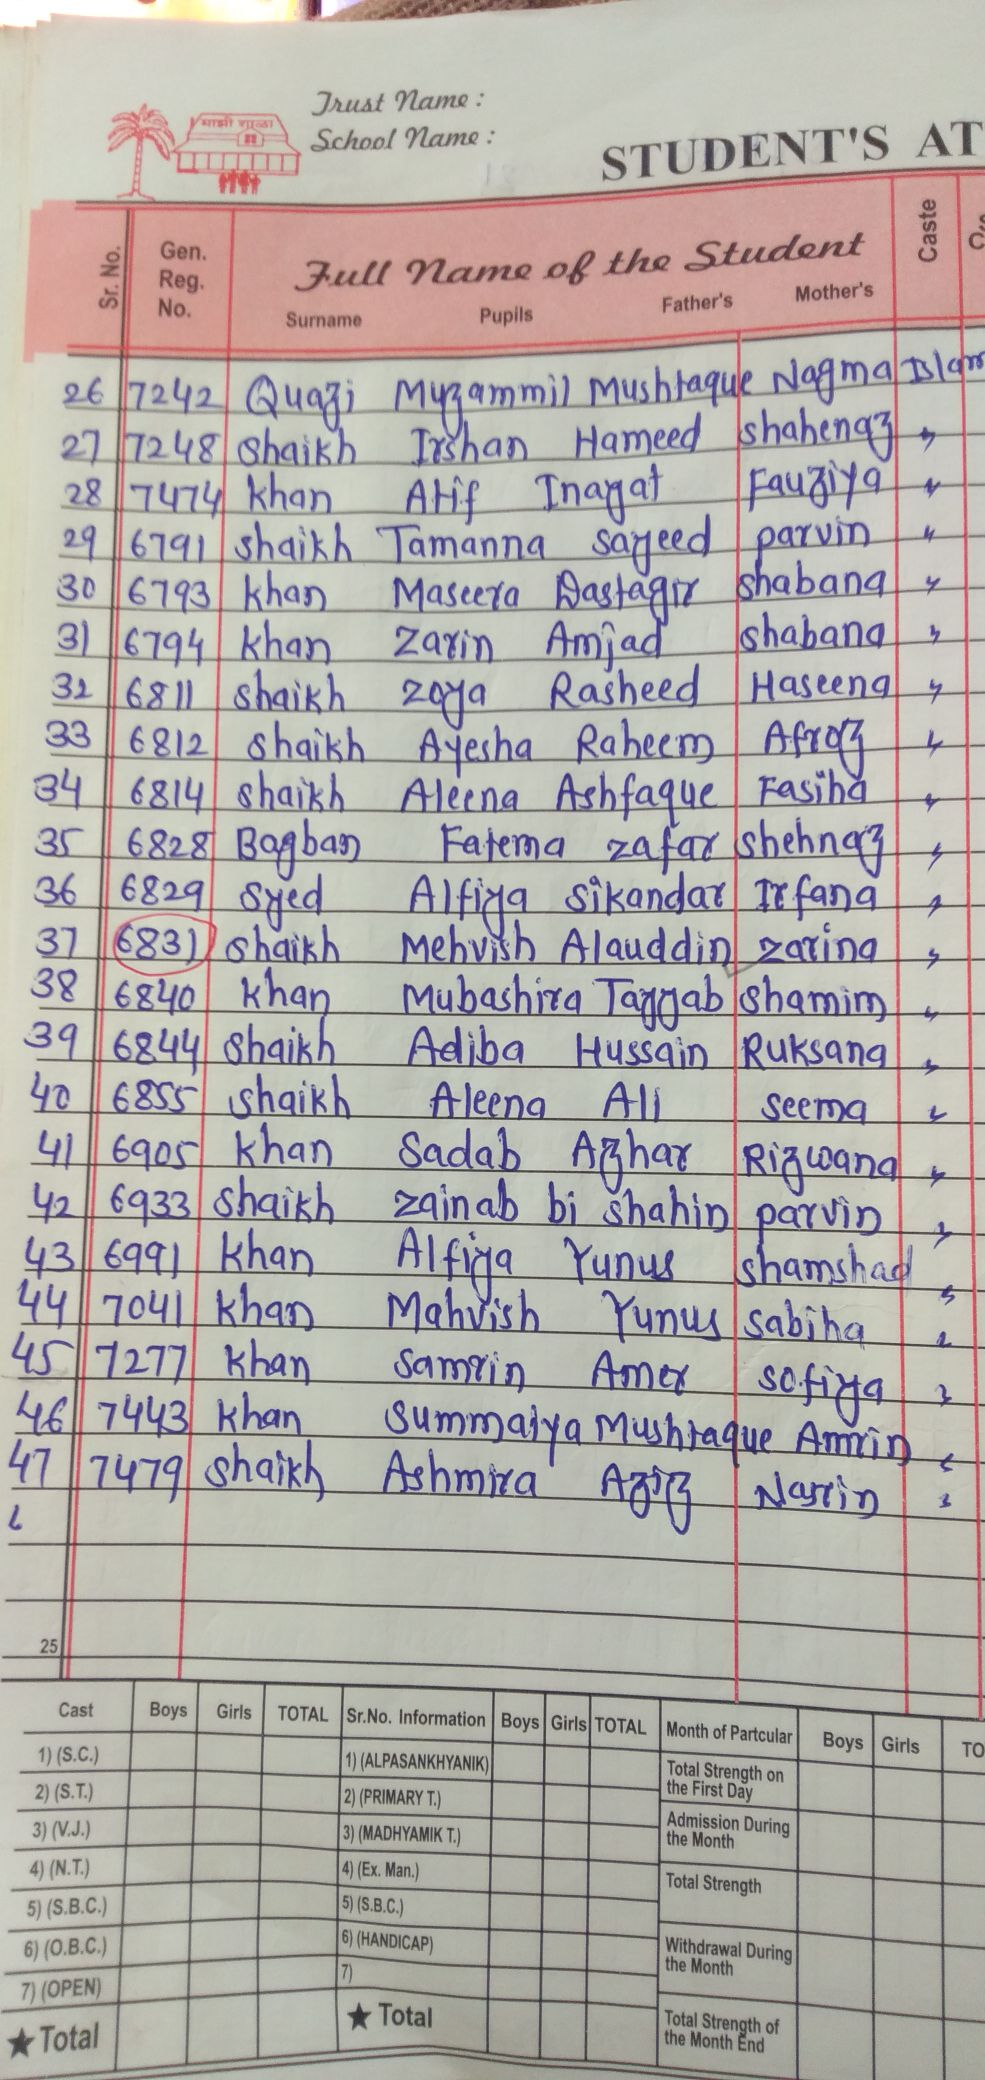 Trust Name :
School Name :
माझी शाळा
STUDENT'S AT
Sr. No. Gen. Reg. No. Full Name of the Student Caste
Surname Pupils Father's Mother's
26 7242 Quazi Muzammil Mushtaque Nagma Islam
27 7248 Shaikh Irshan Hameed Shahenaz "
28 7474 Khan Atif Inayat Fauziya "
29 6791 Shaikh Tamanna Sayeed Parvin "
30 6793 Khan Maseera Dastagir Shabana "
31 6794 Khan Zarin Amjad Shabana "
32 6811 Shaikh Zoya Rasheed Haseena "
33 6812 Shaikh Ayesha Raheem Afroz "
34 6814 Shaikh Aleena Ashfaque Fasiha "
35 6828 Bagban Fatema Zafar Shehnaz "
36 6829 Syed Alfiya Sikandar Irfana "
37 6831 Shaikh Mehvish Alauddin Zarina "
38 6840 Khan Mubashira Tayyab Shamim "
39 6844 Shaikh Adiba Hussain Ruksana "
40 6855 Shaikh Aleena Ali Seema "
41 6905 Khan Sadab Azhar Rizwana "
42 6933 Shaikh Zainab bi Shahin Parvin "
43 6991 Khan Alfiya Yunus Shamshad "
44 7041 Khan Mahvish Yunus Sabiha "
45 7277 Khan Samrin Amer Sofiya "
46 7443 Khan Summaiya Mushtaque Amrin "
47 7479 Shaikh Ashmira Aziz Nasrin "
25
Cast Boys Girls TOTAL Sr.No. Information Boys Girls TOTAL Month of Partcular Boys Girls TO
1) (S.C.) 1) (ALPASANKHYANIK) Total Strength on the First Day
2) (S.T.) 2) (PRIMARY T.) Admission During the Month
3) (V.J.) 3) (MADHYAMIK T.)
4) (N.T.) 4) (Ex. Man.) Total Strength
5) (S.B.C.) 5) (S.B.C.)
6) (O.B.C.) 6) (HANDICAP) Withdrawal During the Month
7) (OPEN) 7)
★ Total ★ Total Total Strength of the Month End